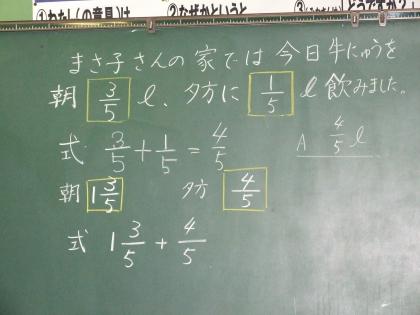 ①わたし(の意見)は ②なぜかというと ③ どうですか?
まさ子さんの家では今日牛にゅうを
朝 3/5 l、夕方に 1/5 l 飲みました。
式 3/5 + 1/5 = 4/5 A 4/5 l
朝 1 3/5 夕方 4/5
式 1 3/5 + 4/5